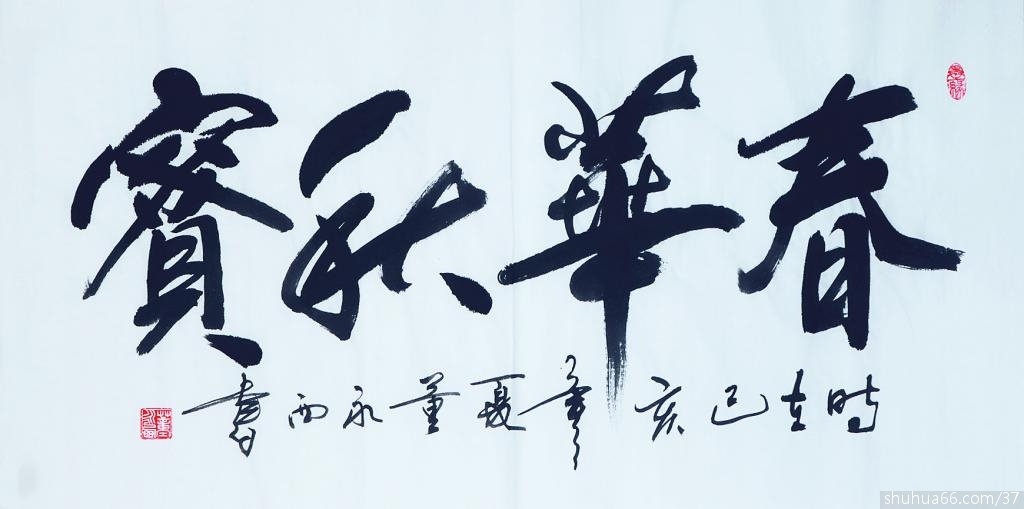 春華秋實
時在己亥年夏董永西書
shuhua66.com/37